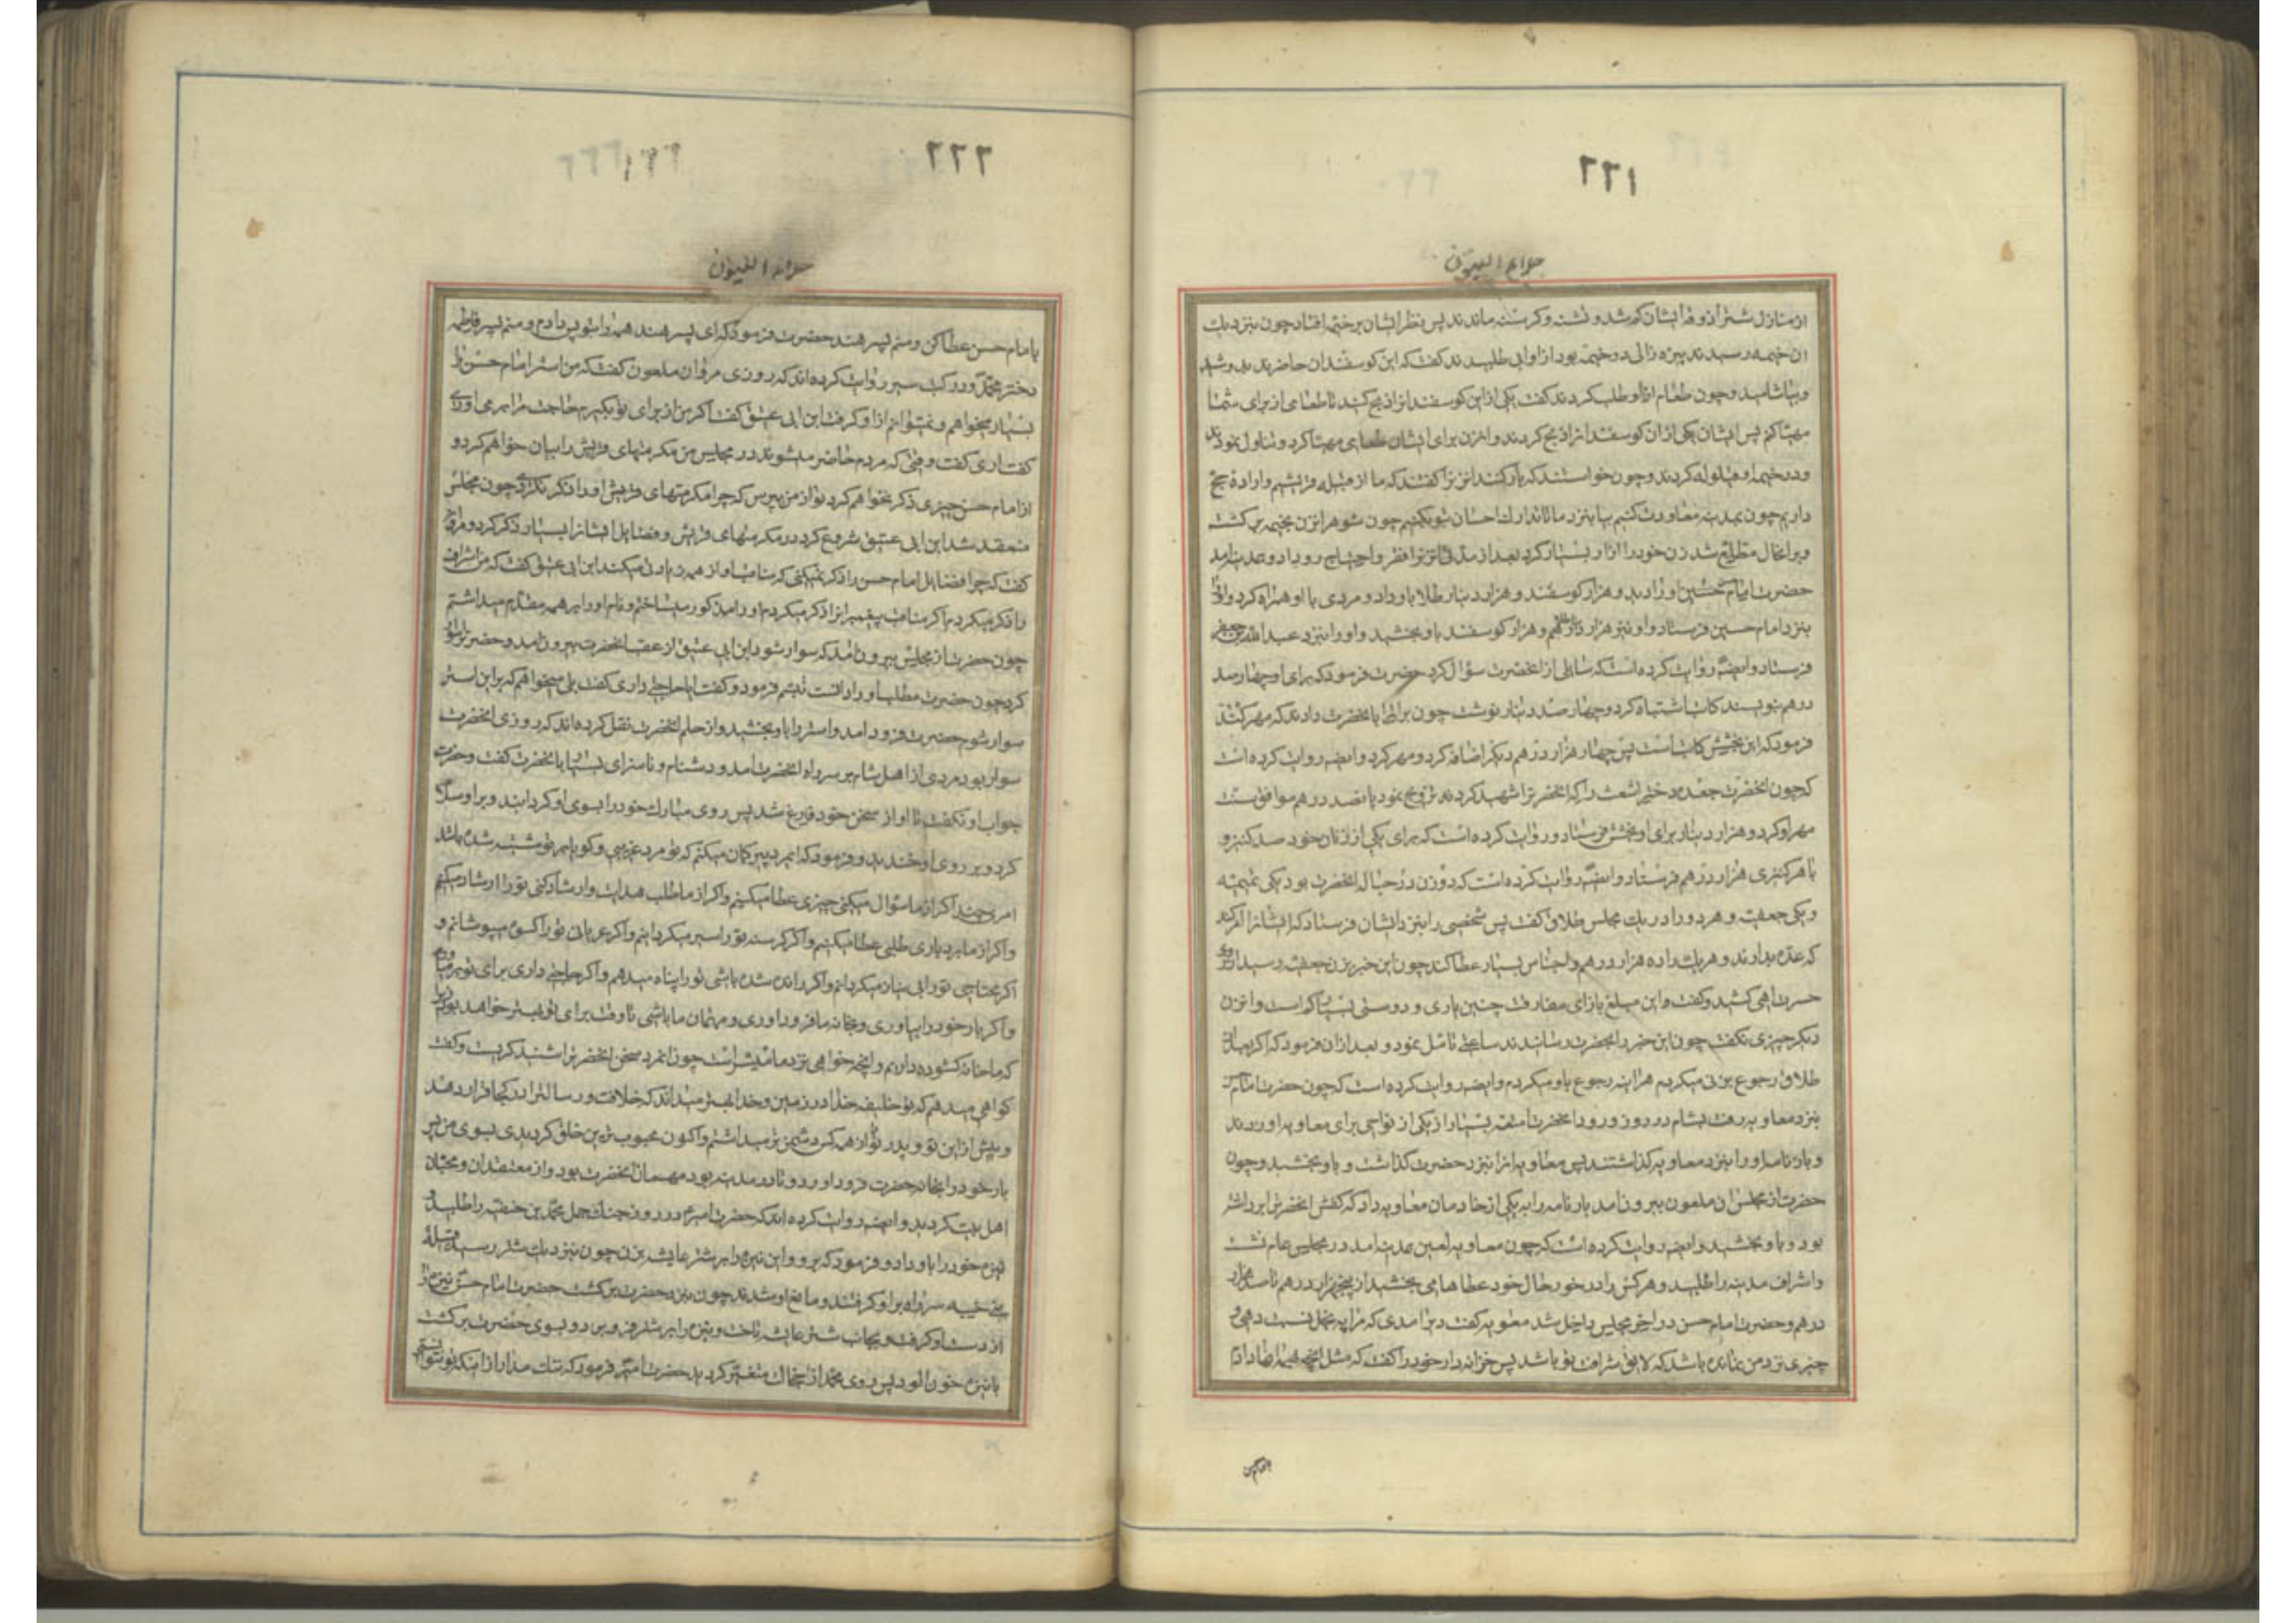 ٢٢١
جلاء العیون
از منازل شتر آذوقه ایشان کم شد و تشنه و کرسنه ماندند پس نظر ایشان بر خیمه افتاد چون بنزدیك
ان خیمه رسیدند پیره زالی در خیمه بود از او ابی طلبیدند کفت که این کوسفندان حاضرند بدوشید
وبیاشامید و چون طعام از او طلب کردند کفت یکی از این کوسفندانرا ذبح کنید تا طعامی از برای شما
مهیا کنم پس ایشان یکی از ان کوسفندانرا ذبح کردند و انزن برای ایشان طعامی مهیا کرد و تناول نمودند
ودر خیمه او قیلوله کردند و چون خواستند که بار کنند انزنرا کفتند که ما از قبیله قریشیم و اراده حج
داریم چون بمدینه معاودت کنیم بیا بنزد ما تا تدارك احسان تو بکنیم چون شوهر انزن بخیمه بر کشت
وبر انحال مطلع شد زن خود را ازار بسیار کرد بعد از مدتی انزنرا فقر و احتیاج رو داد و بمدینه امد
حضرت امام حسن او را دید و هزار کوسفند و هزار دینار طلا باو داد و مردی با او همراه کرد واورا
بنزد امام حسین فرستاد و او نیز هزار دینار طلا و هزار کوسفند باو بخشید و او را بنزد عبد الله بن جعفر
فرستاد وایضا روایت کرده است که سایلی از انحضرت سؤال کرد حضرت فرمود که برای او چهار صد
درهم بنویسند کاتب اشتباه کرد و چهار صد دینار نوشت چون برات را بانحضرت دادند که مهر کنند
فرمود که این بخشش کاتب است پس چهار هزار درهم دیکر اضافه کرد و مهر کرد وایضا روایت کرده است
که چون انحضرت جعده دختر اشعث را که انحضرترا شهید کرد تزویج نمود پانصد درهم موافق سنت
مهر او کرد و هزار دینار برای او بخشش فرستاد و روایت کرده است که برای یکی از زنان خود صد کنیز و
با هر کنیزی هزار درهم فرستاد وایضا روایت کرده است که دو زن در حباله انحضرت بود یکی تمیمیه
ویکی جعفیه و هر دو را در یك مجلس طلاق کفت پس شخصی را بنزد ایشان فرستاد که ایشانرا امر کند
که عده بدارند و هر یك را ده هزار درهم و اجناس بسیار عطا کند چون این خبر بزن جعفیه رسید از روی
حسرت اهی کشید و کفت این مبلغ بازای مفارقت چنین یاری و دوستی بسیار کم است و ان زن
دیکر چیزی نکفت چون این خبر را بحضرت رسانیدند ساعتی تامل نمود و بعد از ان فرمود که اکر بعد از
طلاق رجوع بزنی میکردم هراینه رجوع باو میکردم وایضا روایت کرده است که چون حضرت امام حسن
بنزد معاویه رفت بشام در روز ورود انحضرت امتعه بسیار از یکی از نواحی برای معاویه اوردند
و بار نامه او را بنزد معاویه کذاشتند پس معاویه انرا بنزد حضرت کذاشت و باو بخشید و چون
حضرت از مجلس ان ملعون بیرون امد بار نامه را به یکی از خادمان معاویه داد که کفش انحضرترا برداشته
بود و باو بخشید وایضا روایت کرده است که چون معاویه لعین بمدینه امد در مجلس عام نشست
واشراف مدینه را طلبید و هر کس را در خور حال خود عطاها می بخشید از پنجهزار درهم تا صد هزار
درهم و حضرت امام حسن در اخر مجلس داخل شد معویه کفت دیر امدی که مرا به بخل نسبت دهی و
چیزی نزد من نمانده باشد که لایق شرافت تو باشد پس خزانه دار خود را کفت که مثل انچه بهمه عطا دادم
بامام حسن
٢٢٢
جلاء العیون
بامام حسن عطا کن و منم پسر هند حضرت فرمود که ای پسر هند همه را بتو پس دادم و منم پسر فاطمه
دختر محمد و در کتب سیر روایت کرده اند که روزی مروان ملعون کفت که من استر امام حسن را
بسیار میخواهم و نمیتوانم از او کرفت ابن ابی عتیق کفت اکر من از برای تو بکیرم حاجت مرا بر می اوری
کفت اری کفت وقتی که مردم حاضر میشوند در مجلس من مکرمتهای قریش را بیان خواهم کرد و
از امام حسن چیزی ذکر نخواهم کرد تو از من بپرس که چرا مکرمتهای قریش او را ذکر نکردی چون مجلس
منعقد شد ابن ابی عتیق شروع کرد در مکرمتهای قریش و فضایل ایشانرا بسیار ذکر کرد و مروان
کفت که چرا فضایل امام حسن را ذکر نمیکنی که مناقب او از همه زیادتی میکند ابن ابی عتیق کفت که من اشراف
را ذکر میکردم اکر مناقب پیغمبرانرا ذکر میکردم او را مذکور میساختم و نام او را بر همه مقدم میداشتم
چون حضرت از مجلس بیرون امد که سوار شود ابن ابی عتیق از عقب انحضرت بیرون امد و حضرترا
کرد چون حضرت مطلب او را دانست تبسم فرمود و کفت ایا حاجتی داری کفت بلی میخواهم که بر این استر
سوار شوم حضرت فرود امد و استر را باو بخشید و از حلم انحضرت نقل کرده اند که روزی انحضرت
سوار بود مردی از اهل شام بر سر راه انحضرت امد و دشنام و ناسزای بسیار بانحضرت کفت و حضرت
جواب او نکفت تا او از سخن خود فارغ شد پس روی مبارك خود را بسوی او کردانید و بر او سلام
کرد و بر روی او خندید و فرمود که ایمرد پیر کمان میکنم که تو مرد غریبی و کویا بر تو مشتبه شده باشد
امری چند اکر از ما سؤال میکنی چیزی عطا میکنیم و اکر از ما طلب هدایت و ارشاد کنی تو را ارشاد میکنم
واکر از ما بردباری طلبی عطا میکنیم و اکر کرسنه تو را سیر میکردانیم و اکر عریانی تو را کسوه میپوشانم و
اکر محتاجی تو را بی نیاز میکردانم و اکر رانده شده باشی تو را پناه میدهم و اکر حاجتی داری برای تو بر میاورم
واکر بار خود را بیاوری و بخانه ما فرود اوری و مهمان ما باشی تا وقت برای تو بهتر خواهد بود زیرا
که ما خانه کشوده داریم و انچه خواهی نزد ما میسر است چون انمرد سخن انحضرترا شنید کریست و کفت
کواهی میدهم که تو خلیفه خدا در زمین و خدا بهتر میداند که خلافت و رسالترا در کجا قرار دهد
و پیش از این تو و پدر تو را از همه کس دشمن تر میداشتم و اکنون محبوب ترین خلق کردیدی بسوی من پس
بار خود را بخانه حضرت فرود اورد و تا در مدینه بود مهمان انحضرت بود و از معتقدان و محبان
اهل بیت کردید وایضا روایت کرده اند که حضرت امیر در روز جنك جمل محمد بن حنفیه را طلبید و
نیزه خود را باو داد و فرمود که برو و این نیزه را بر شتر عایشه بزن چون بنزدیك شتر رسید قبیله
بنی ضبه سر راه بر او کرفتند و مانع او شدند چون بنزد حضرت بر کشت حضرت امام حسن نیزه را
از دست او کرفت و بجانب شتر عایشه تاخت و نیزه را بر شتر فرو برد و بسوی حضرت بر کشت
با نیزه خون الود پس روی محمد از خجالت متغیر کردید حضرت امیر فرمود که ننك مدار از اینکه تو نتوانستی